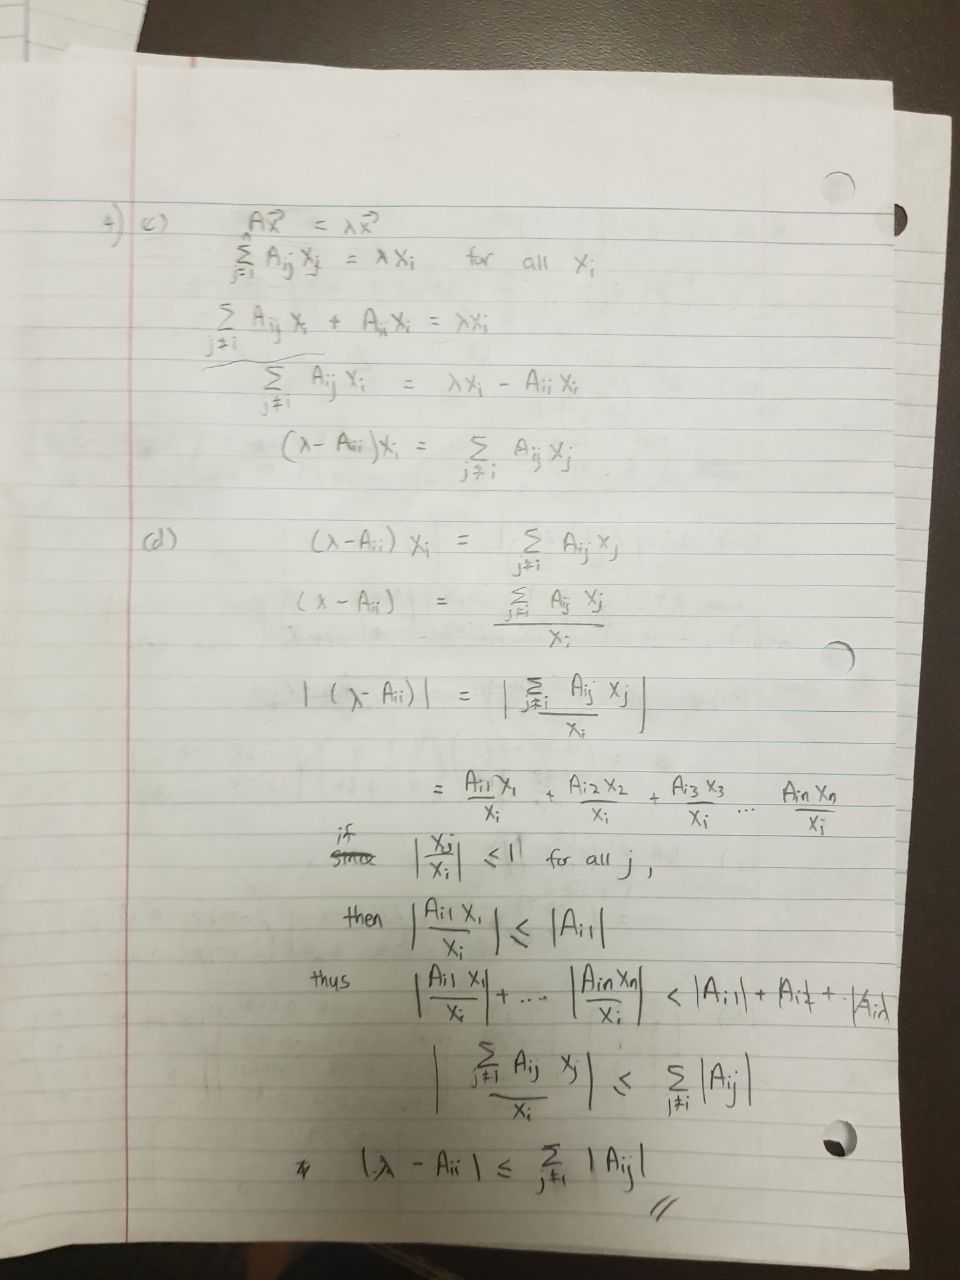 4) c) Ax⃗ = λx⃗
∑_{j=1}^{n} A_{ij} x_j = λ x_i for all x_i
∑_{j≠i} A_{ij} x_i + A_{ii} x_i = λx_i
∑_{j≠i} A_{ij} x_i = λx_i - A_{ii} x_i
(λ - A_{ii})x_i = ∑_{j≠i} A_{ij} x_j
(d) (λ - A_{ii}) x_i = ∑_{j≠i} A_{ij} x_j
(λ - A_{ii}) = \frac{∑_{j≠i} A_{ij} x_j}{x_i}
|(λ - A_{ii})| = |\frac{∑_{j≠i} A_{ij} x_j}{x_i}|
= \frac{A_{i1} x_1}{x_i} + \frac{A_{i2} x_2}{x_i} + \frac{A_{i3} x_3}{x_i} ... \frac{A_{in} x_n}{x_i}
if
since |\frac{x_j}{x_i}| ≤ 1 for all j,
then |\frac{A_{i1} x_1}{x_i}| ≤ |A_{i1}|
thus |\frac{A_{i1} x_1}{x_i}| + ... |\frac{A_{in} x_n}{x_i}| < |A_{i1}| + |A_{i2}| + ... |A_{in}|
|\frac{∑_{j≠i} A_{ij} x_j}{x_i}| ≤ ∑_{j≠i} |A_{ij}|
* |λ - A_{ii}| ≤ ∑_{j≠i} |A_{ij}| //